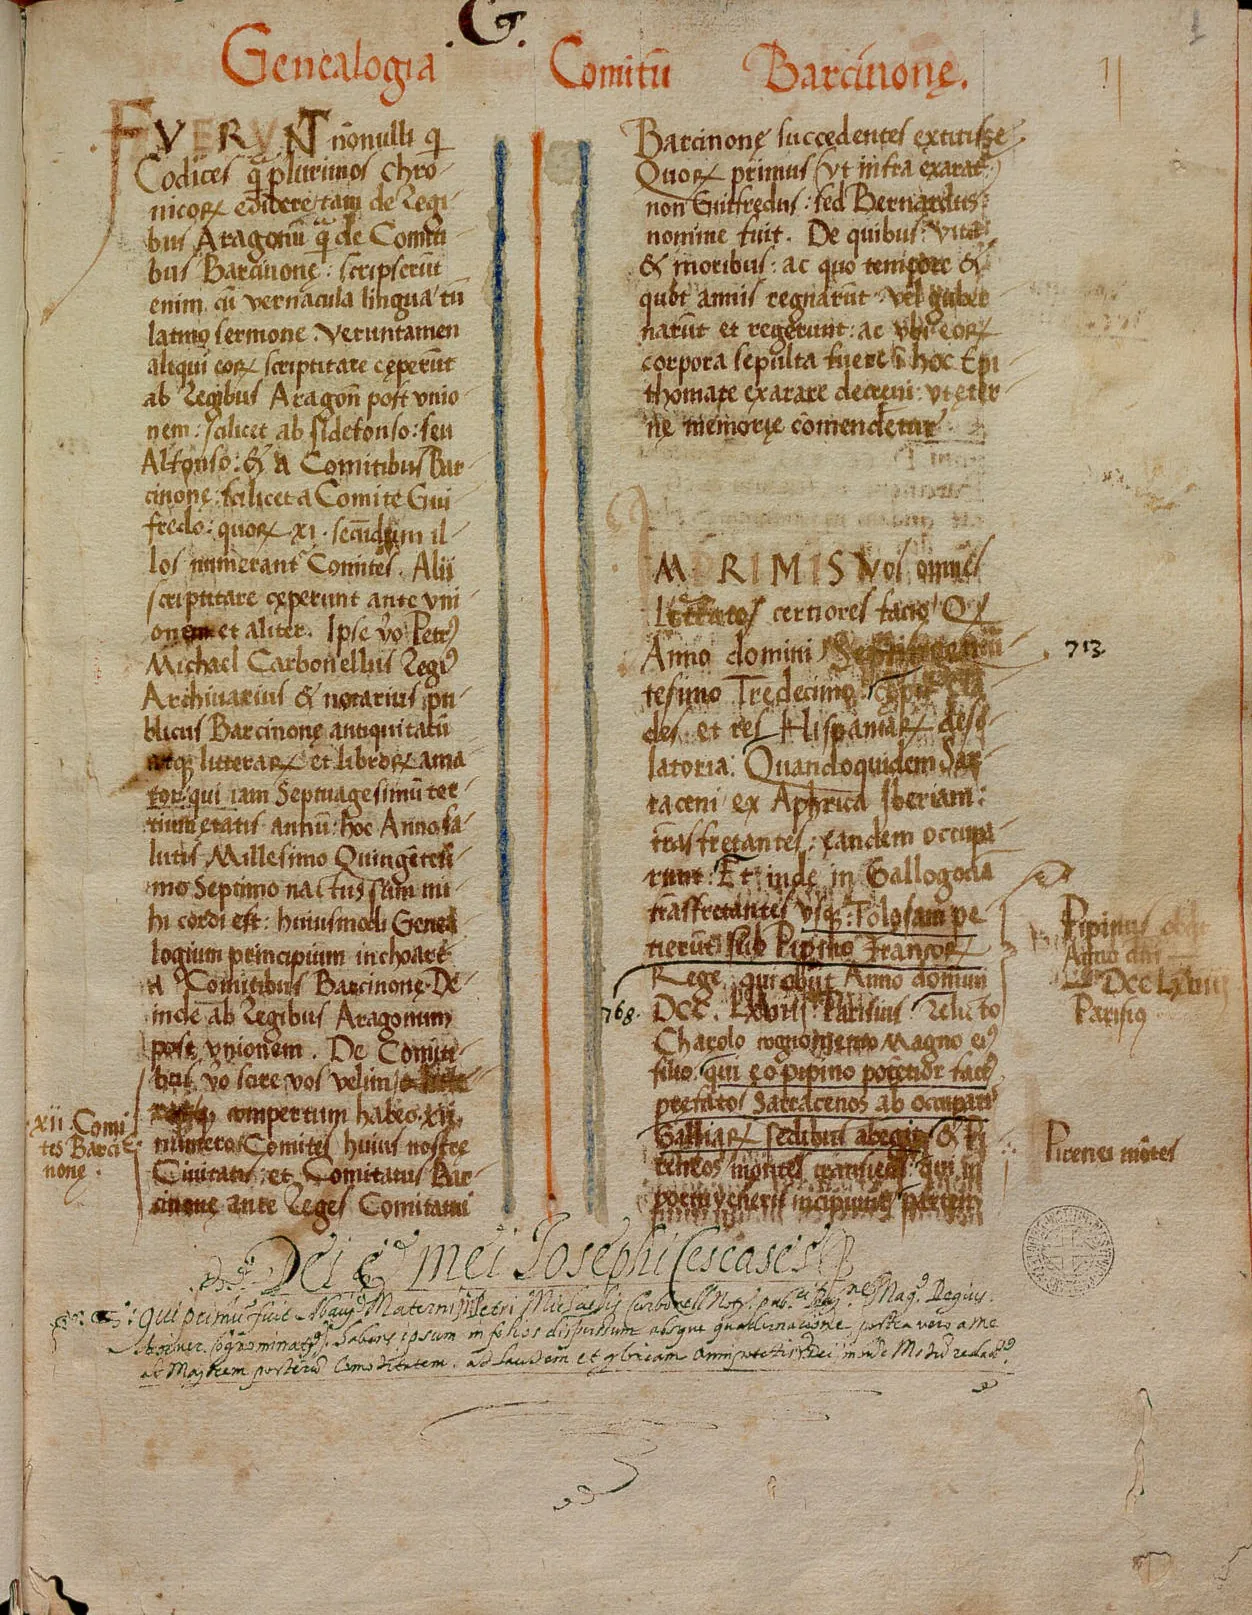 .G.
1
Genealogia Comitũ Barcinonę.
FVERVNT nõnulli q̃
Codices q̃ plurimos chro-
nicoꝝ edidere tam de Regi-
bus Aragonũ q̃ de Comiti
bus Barcinonę: scripserũt
enim cũ vernacula lingua tũ
latino sermone. Veruntamen
aliqui eoꝝ scriptitare cęperũt
ab Regibus Aragoñ post vnio
nem: scilicet ab Ildefonso: seu
Alfonso: & a Comitibus Bar-
cinonę: scilicet a Comite Gui
fredo: quoꝝ .xi. secũdum il-
los numerantᷣ Comites. Alii
scriptitare cęperunt ante vni
onem et aliter. Ipse ṽo Petrꝰ
Michael Carbonellus Regiꝰ
Archiuarius & notarius pu
blicus Barcinonę antiquitatũ
atqꝫ litteraꝝ et libroꝝ ama
tor: qui iam Septuagesimũ ter-
tium ętatis annũ: hoc Anno sa-
lutis Millesimo Quingẽtesi-
mo Septimo nactus sum mi-
hi cordi est: huiusmodi Genea
logium principium inchoare
a Comitibus Barcinonę. De-
inde ab Regibus Aragonum
post vnionem. De Comiti-
bus ṽo scire vos velim
compertum habeo .xii.
numero Comites huius nostrę
Ciuitatis: et Comitatus Bar-
cinonę ante Reges Comitatui
xii. Comi
tes Barci
nonę.
Barcinonę succedentes extitisse
Quoꝝ primus (vt infra exaratᷣ)
non Guifredus: sed Bernardus
nomine fuit. De quibus: vita
& moribus: ac quo tempore &
quot annis regnarũt vel guber
narũt et regerunt: ac vbi eoꝝ
corpora sepulta fuere ĩ hoc Epi
thomate exarare decreui: vt ęter-
nę memorię cõmendetur
M PRIMIS Vos omnes
litteratos certiores facio Qꝫ
Anno domini Septingen
tesimo Tredecimo cępit cla
des et res Hispaniaꝝ deso-
latoria: Quandoquidem Sar-
raceni ex Aphrica Iberiam:
trãsfretantes: eandem occupa
runt: Et inde in Gallogotia
trãsfretantes vsqꝫ Tolosam pe
tierũt sub Pipino Francoꝝ
Rege qui obiit Anno domini
DCC. LXviij Parisius: Relicto
Charolo cognomento Magno eiꝰ
filio qui eo pipino potẽtior factꝰ
prefatos Sarracenos ab occupatis
Galliaꝝ sedibus abegit & Pi
reneos montes transiens: qui in
portu veneris incipiunt partem
713
768.
Pipinus obiit
Anno dñi
DCCLXviij
Parisiꝰ
Pirenei mõtes
Dei & mei Josephi Cescases
qui primũ fuit Abauj Materni Petri Michaelis Carbonell Notj. pub. Mag. Regius
cognominatj. habens ipsum in folios dispersum absque quaternacione postea vero a me
ad Maiorem posterum Comoditatem. ad Laudem et gloriam omnipotentis Dei